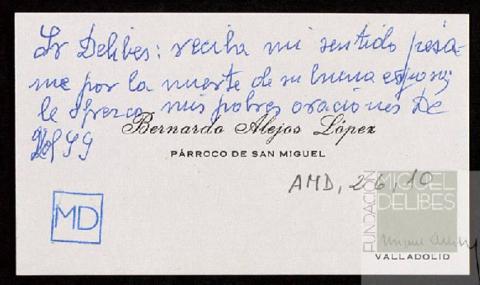 Sr Delibes: reciba mi sentido pésa-
me por la muerte de su buena esposa;
le ofrezco mis pobres oraciones De
Bernardo Alejos López
PÁRROCO DE SAN MIGUEL
AMD, 2-6, 10
MD
FUNDACIÓN
MIGUEL
DELIBES
VALLADOLID